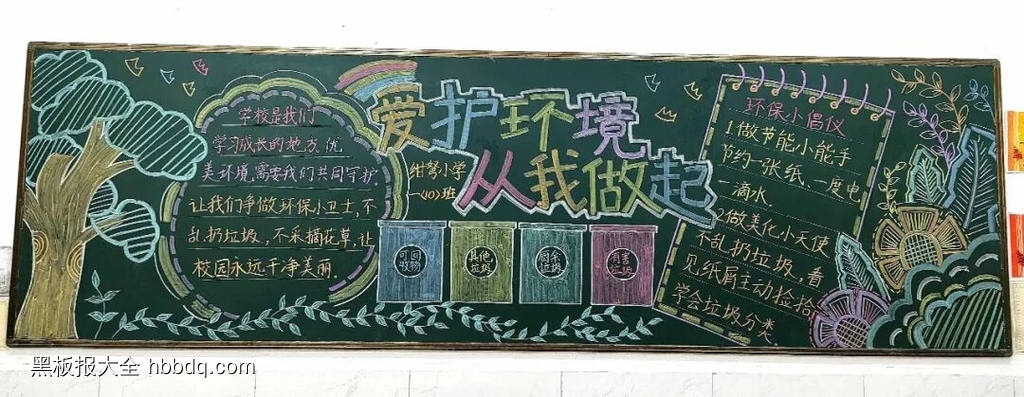 爱护环境
从我做起
学校是我们
学习成长的地方,优
美环境,需要我们共同守护.
让我们争做环保小卫士,不
乱扔垃圾,不采摘花草,让
校园永远干净美丽.
小学
一(10)班
可回
收物
其他
垃圾
厨余
垃圾
有害
垃圾
环保小倡仪
1做节能小能手
节约一张纸、一度电
一滴水.
2做美化小天使
不乱扔垃圾,看
见纸屑主动捡拾
学会垃圾分类.
黑板报大全 hbbdq.com